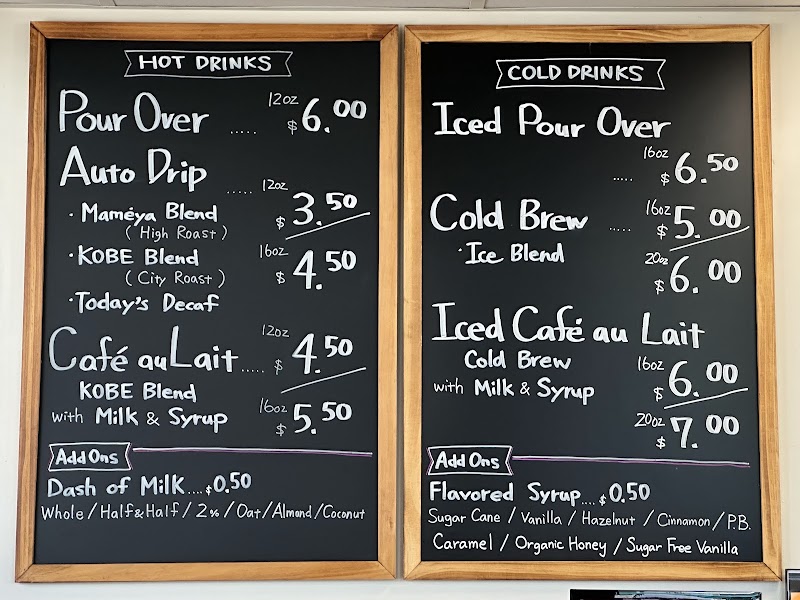 HOT DRINKS
Pour Over ..... 12oz $6.00
Auto Drip ..... 12oz $3.50
・Maméya Blend
( High Roast )
・KOBE Blend 16oz $4.50
( City Roast )
・Today's Decaf
Café au Lait ..... 12oz $4.50
KOBE Blend
with Milk & Syrup 16oz $5.50
Add Ons
Dash of Milk....$0.50
Whole / Half&Half / 2% / Oat / Almond / Coconut
COLD DRINKS
Iced Pour Over
..... 16oz $6.50
Cold Brew ..... 16oz $5.00
・Ice Blend 20oz $6.00
Iced Café au Lait
Cold Brew 16oz $6.00
with Milk & Syrup
20oz $7.00
Add Ons
Flavored Syrup....$0.50
Sugar Cane / Vanilla / Hazelnut / Cinnamon / P.B.
Caramel / Organic Honey / Sugar Free Vanilla